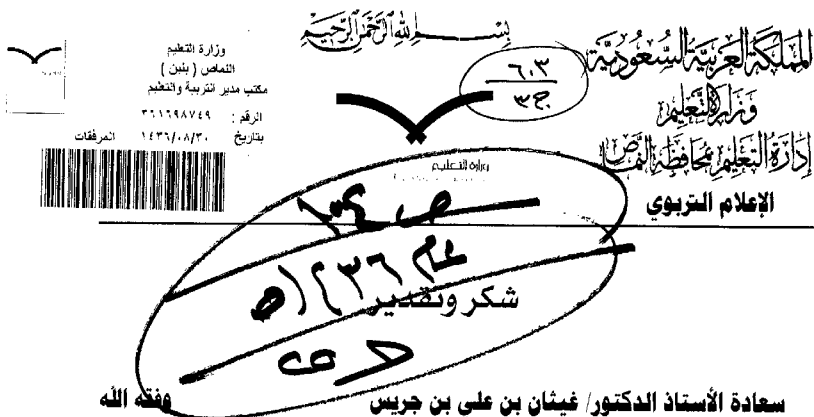 بسم الله الرحمن الرحيم
المملكة العربية السعودية
وزارة التعليم
إدارة التعليم بمحافظة النماص
الإعلام التربوي
٦٠٣
ج٣
وزارة التعليم
وزارة التعليم
النماص ( بنين )
مكتب مدير التربية والتعليم
الرقم : ٣٦١٦٩٨٧٤٩
بتاريخ ١٤٣٦/٠٨/٣٠ المرفقات
عام ١٤٣٦هـ
شكر وتقدير
سعادة الأستاذ الدكتور/ غيثان بن علي بن جريس وفقه الله